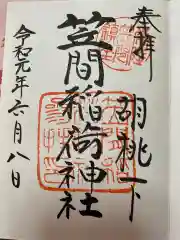 奉拝
胡桃下
笠間稲荷神社
令和元年六月八日